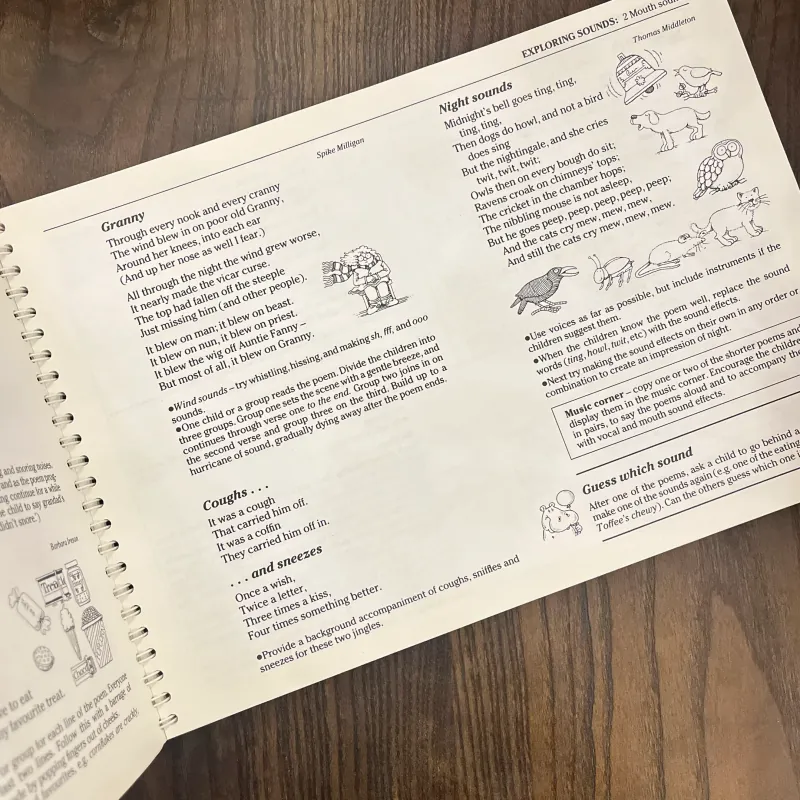 g and snoring noises.
and as the poem prog-
ng continue for a while
e child to say grandad's
didn't snore.)
Barbara Ireson
Treacle
Choco
ve to eat
y favourite treat.
or group for each line of the poem. Everyone
last two lines. Follow this with a barrage of
made by popping fingers out of cheeks.
favourites, e.g. cornflakes are crackly,
EXPLORING SOUNDS: 2 Mouth soun
Spike Milligan
Granny
Through every nook and every cranny
The wind blew in on poor old Granny,
Around her knees, into each ear
(And up her nose as well I fear.)
All through the night the wind grew worse,
It nearly made the vicar curse.
The top had fallen off the steeple
Just missing him (and other people).
It blew on man; it blew on beast.
It blew on nun, it blew on priest.
It blew the wig off Auntie Fanny –
But most of all, it blew on Granny.
●Wind sounds – try whistling, hissing, and making sh, fff, and ooo
sounds.
●One child or a group reads the poem. Divide the children into
three groups. Group one sets the scene with a gentle breeze, and
continues through verse one to the end. Group two joins in on
the second verse and group three on the third. Build up to a
hurricane of sound, gradually dying away after the poem ends.
Coughs . . .
It was a cough
That carried him off.
It was a coffin
They carried him off in.
. . . and sneezes
Once a wish,
Twice a letter,
Three times a kiss,
Four times something better.
●Provide a background accompaniment of coughs, sniffles and
sneezes for these two jingles.
Thomas Middleton
Night sounds
Midnight's bell goes ting, ting,
ting, ting,
Then dogs do howl, and not a bird
does sing
But the nightingale, and she cries
twit, twit, twit;
Owls then on every bough do sit;
Ravens croak on chimneys' tops;
The cricket in the chamber hops;
The nibbling mouse is not asleep,
But he goes peep, peep, peep, peep, peep;
And the cats cry mew, mew, mew,
And still the cats cry mew, mew, mew.
●Use voices as far as possible, but include instruments if the
children suggest them.
●When the children know the poem well, replace the sound
words (ting, howl, twit, etc) with the sound effects.
●Next try making the sound effects on their own in any order or
combination to create an impression of night.
Music corner – copy one or two of the shorter poems and
display them in the music corner. Encourage the children
in pairs, to say the poems aloud and to accompany the
with vocal and mouth sound effects.
Guess which sound
After one of the poems, ask a child to go behind a
make one of the sounds again (e.g. one of the eating
Toffee's chewy). Can the others guess which one i